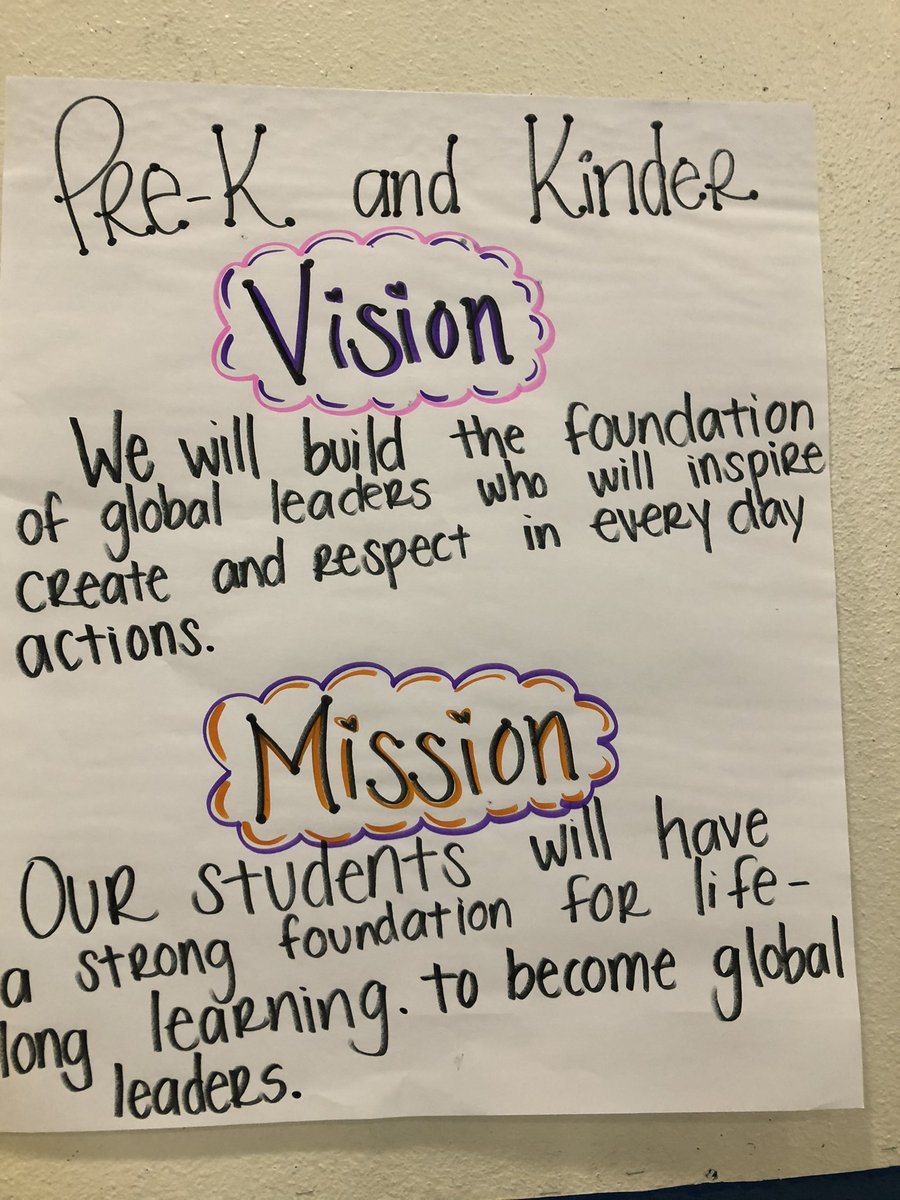 Pre-K and Kinder
Vision
We will build the foundation
of global leaders who will inspire
create and respect in every day
actions.
Mission
Our students will have
a strong foundation for life-
long learning. to become global
leaders.